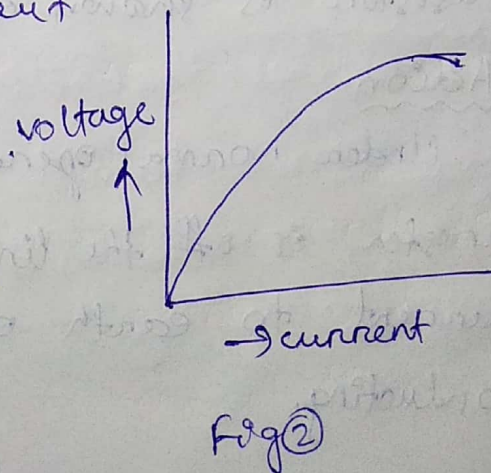 voltage
→ current
Fig ②